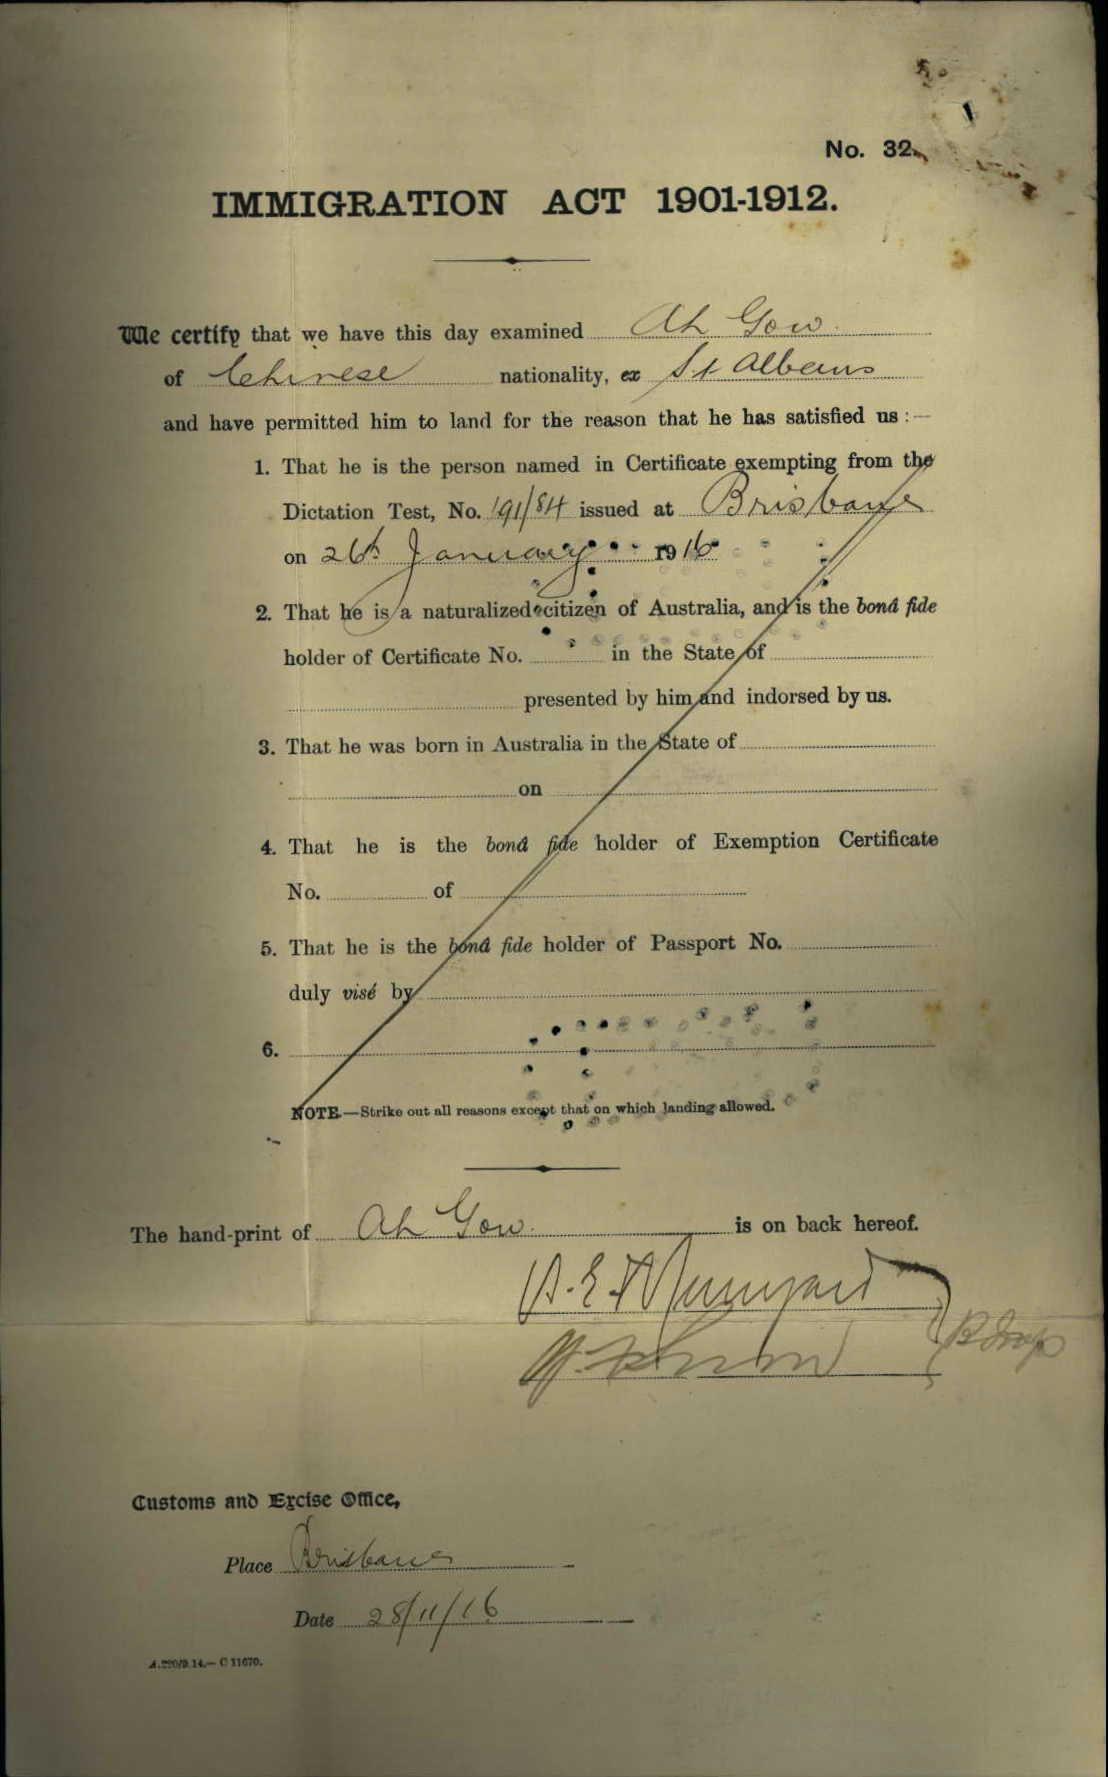 No. 32.
IMMIGRATION ACT 1901-1912.
We certify that we have this day examined Ah Gow
of Chinese nationality, ex St Albans
and have permitted him to land for the reason that he has satisfied us :—
1. That he is the person named in Certificate exempting from the
Dictation Test, No. 191/84 issued at Brisbane
on 26th January 1916
2. That he is a naturalized citizen of Australia, and is the bonâ fide
holder of Certificate No. in the State of
presented by him and indorsed by us.
3. That he was born in Australia in the State of
on
4. That he is the bonâ fide holder of Exemption Certificate
No. of
5. That he is the bonâ fide holder of Passport No.
duly visé by
6.
NOTE.—Strike out all reasons except that on which landing allowed.
The hand-print of Ah Gow is on back hereof.
Customs and Excise Office,
Place Brisbane
Date 28/11/16